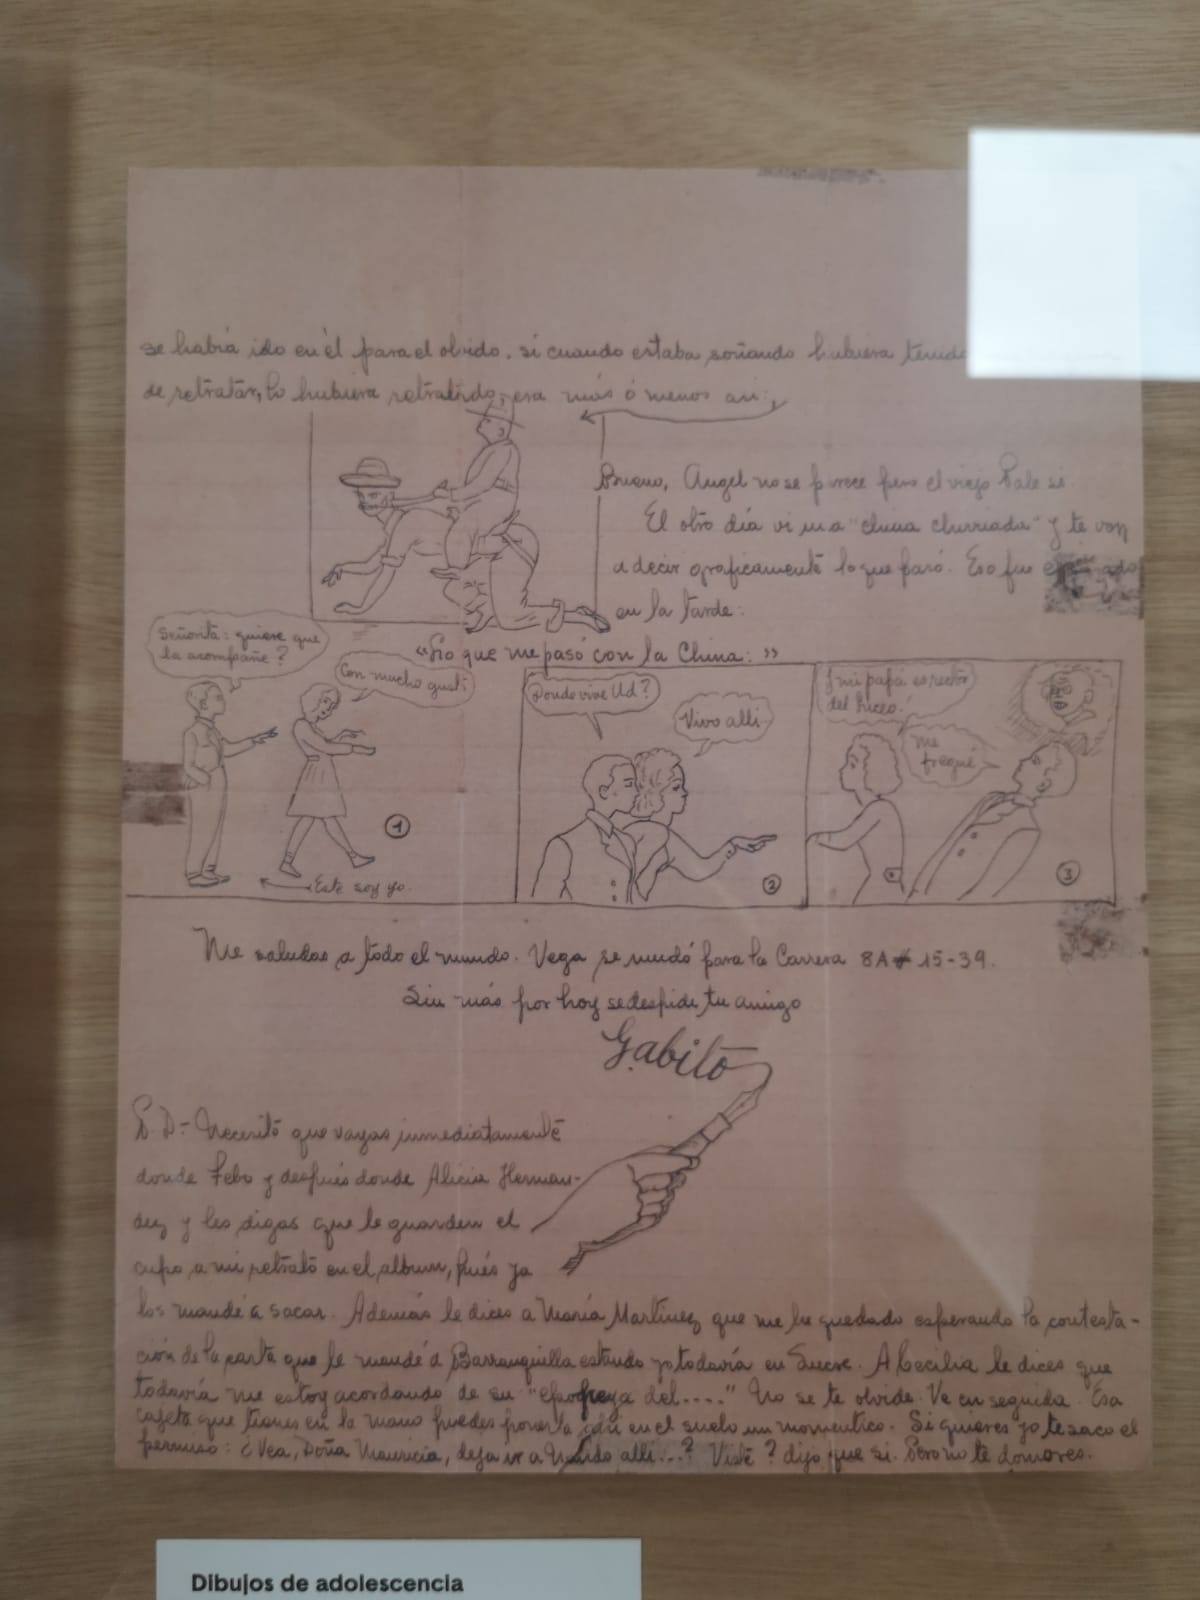 se había ido en él para el olvido. si cuando estaba soñando hubiera tenido
de retratar, lo hubiera retratado, era más ó menos así:
Bueno, Angel no se parece pero el viejo Pale si.
El otro día vi una "china churriada" y te voy
a decir graficamente lo que pasó. Eso fue
en la tarde:
"Lo que me pasó con la China:"
Señorita: quiere que
la acompañe?
Con mucho gusto
1
Este soy yo.
Donde vive Ud?
Vivo alli
2
¡mi papá es rector
del liceo!
me
fregué
3
Me saludas a todo el mundo. Vega se mudó para la Carrera 8A # 15-39.
Sin más por hoy se despide tu amigo
Gabito
P.D.- Necesito que vayas inmediatamente
donde Febo y después donde Alicia Hernan-
dez y les digas que le guarden el
cupo a mi retrato en el album, pués ya
los mandé a sacar. Además le dices a María Martinez que me he quedado esperando la contesta-
ción de la carta que le mandé a Barranquilla estando yo todavía en Sucre. A Cecilia le dices que
todavía me estoy acordando de su " del...." No se te olvide. Ve en seguida. Esa
cajeta que tienes en la mano puedes ponerla ahí en el suelo un momentico. Si quieres yo te saco el
permiso: ¿Vea, Doña Mauricia, deja ir a alli...? Viste? dijo que si. Pero no te demores.
Dibujos de adolescencia